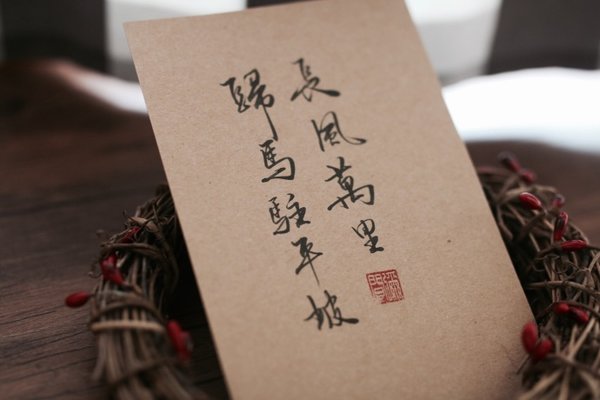 長風萬里
歸馬駐平坡